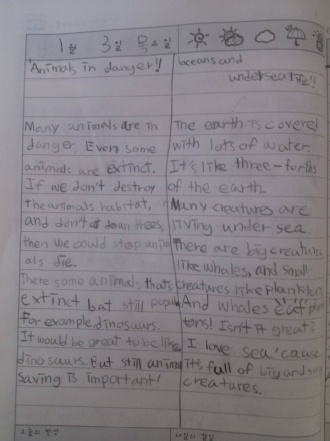 1월 3일 목요일
"Animals in danger!!
Many animals are in
danger. Even some
animals are extinct.
If we don't destroy
the animals habitat,
and don't down trees,
then we could stop anim
als die.
There some animals that's
extinct but still popular
For example dinosaurs.
It would be great to be like
dinosaurs. But still animal
saving is important!
oceans and
undersea
The earth is covered
with lots of water.
It's like three-forths
of the earth
Many creatures are
living under sea.
There are big creatures
like whales, and small
creatures like plankton
And whales eat plank
tons! Isn't it great?
I love sea 'cause
it's full of big and small
creatures.